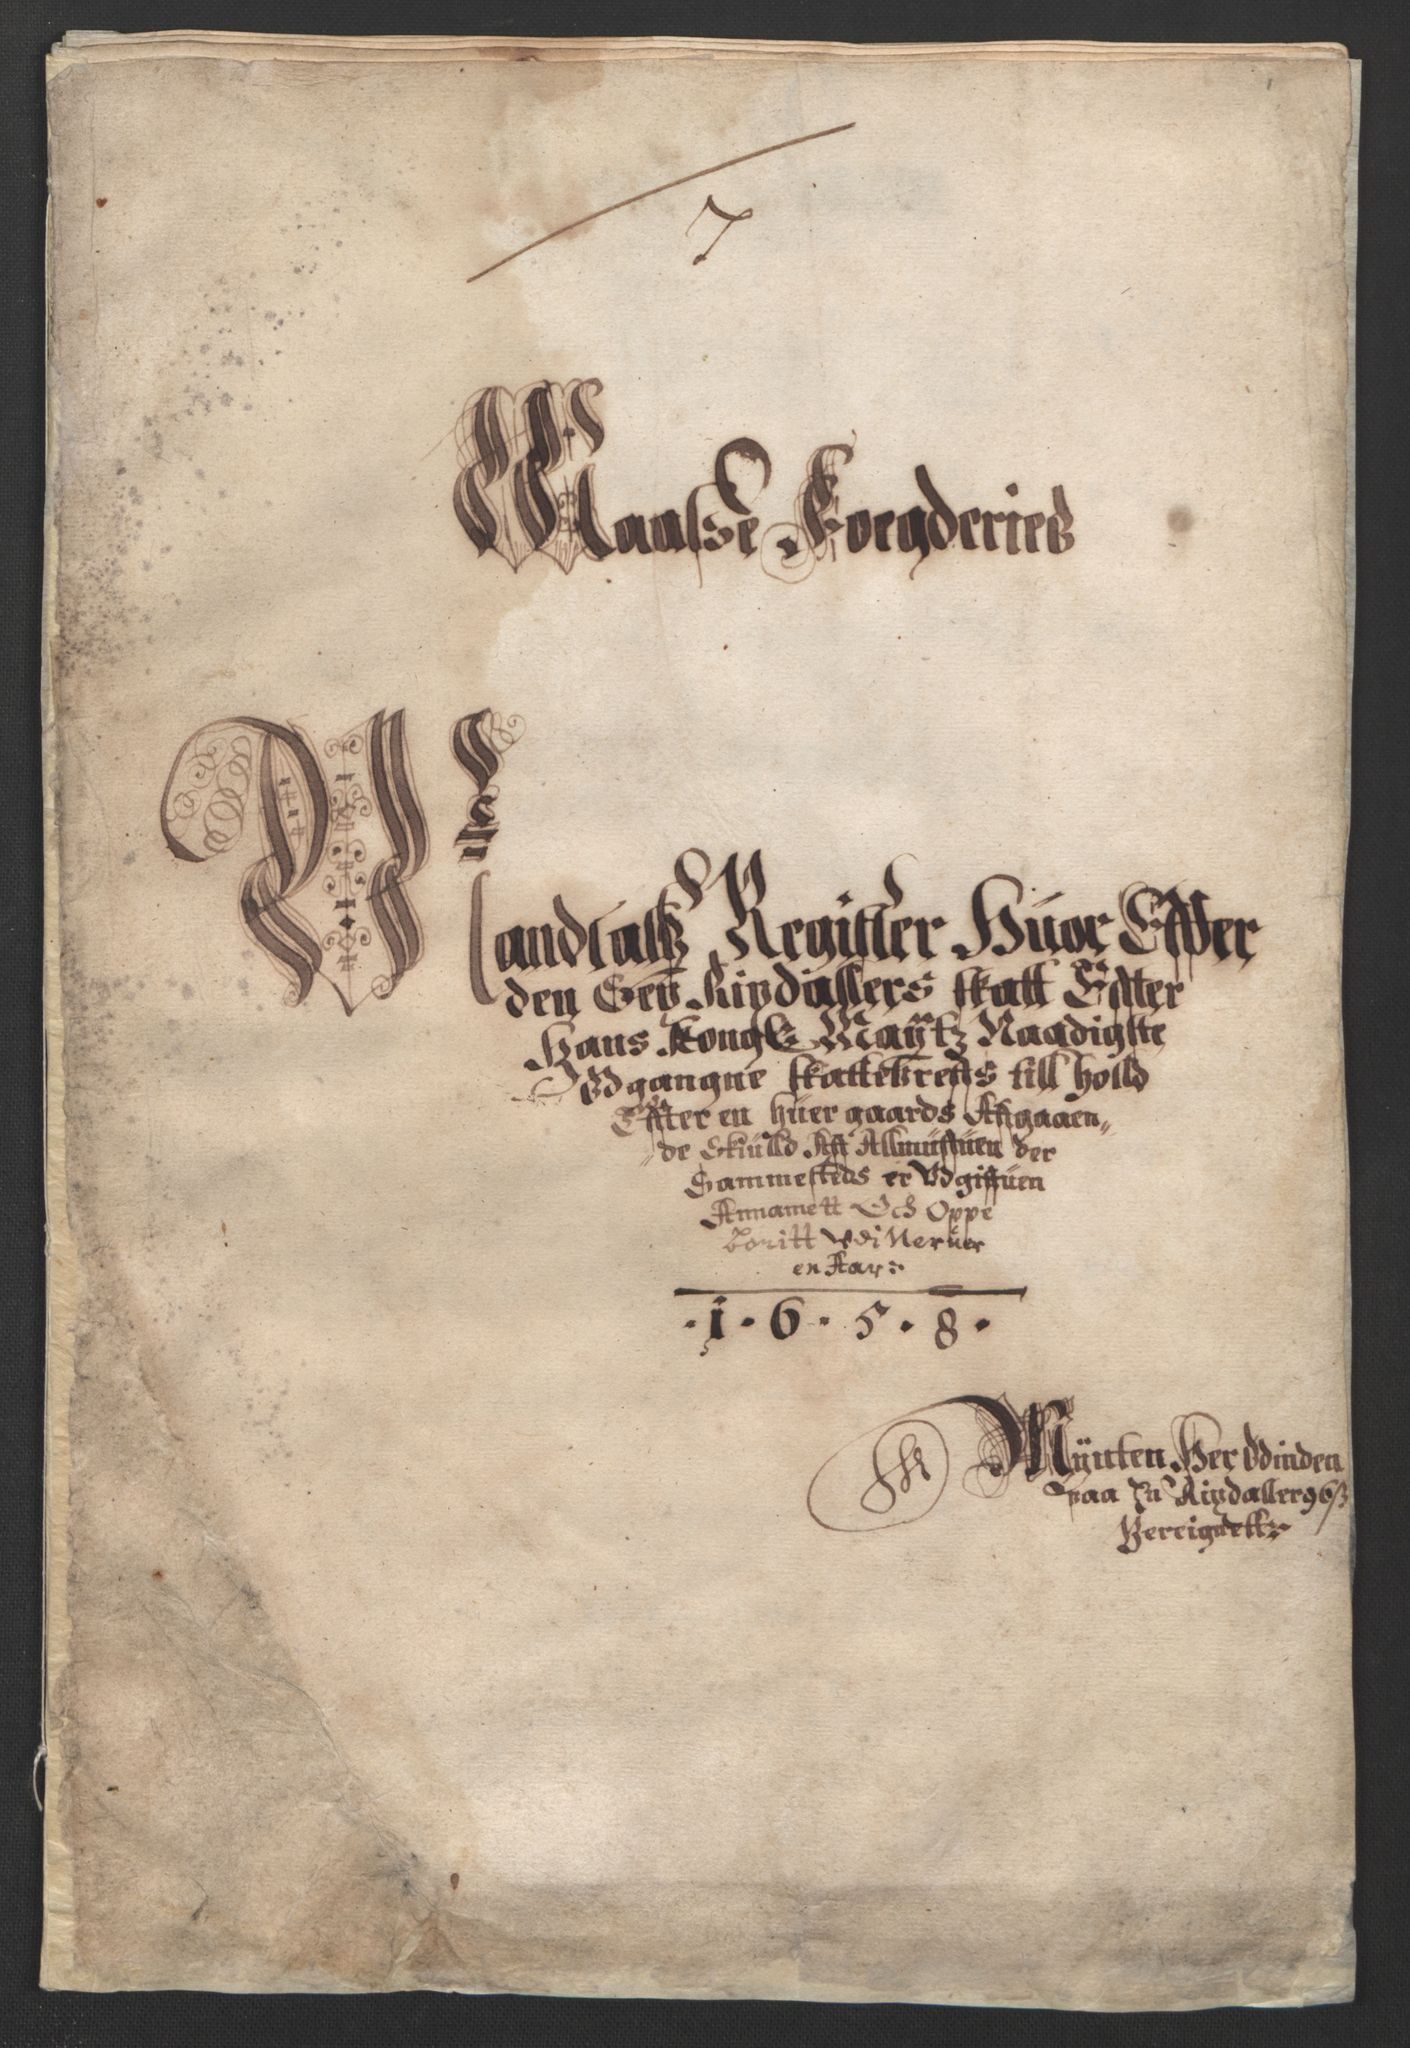 7
Waasse Foegderies
Mandtalsz Register Huor Effter
den Sex Rixdallers skatt Effter
Hans Kongl Maÿtz Naadigste
Vdgangne skattebreffs till holld
Effter en huer gaards Affgaaen„
„de Skiulld Aff Allmuffuen der
Sammesteds er Vdgiffuen
Annamett Och Oppe
boritt vdi Neruer
en Aar:
·1·6·5·8·
Mÿnten Her Vdinden
paa En Rixdaller 96 ß
Bereignett